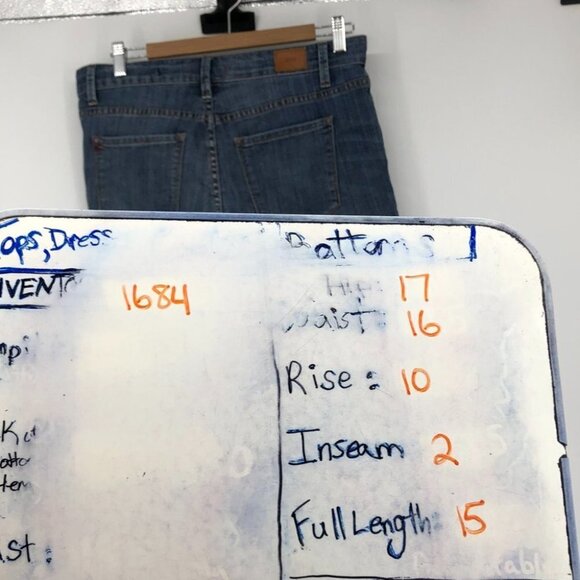 ops, Dress
INVENTO
1684
Bottoms
Hip: 17
Waist: 16
Rise: 10
Inseam 2
Full Length 15